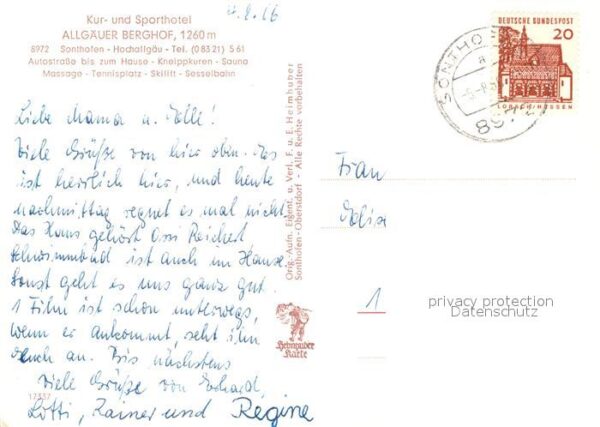 4.8.66
Kur- und Sporthotel
ALLGÄUER BERGHOF, 1260 m
8972 Sonthofen - Hochallgäu - Tel. (0 83 21) 5 61
Autostraße bis zum Hause - Kneippkuren - Sauna
Massage - Tennisplatz - Skilift - Sesselbahn
Liebe Mama u. Elli!
Viele Grüße von hier oben. Es
ist herrlich hier, und heute
nachmittag regnet es mal nicht
Das Haus gehört Ossi Reichert
Schwimmbad ist auch im Hause
Sonst geht es uns ganz gut.
1 Film ist schon unterwegs,
wenn er ankommt, seht ihn
Euch an. Bis nächstens
Viele Grüße von Erhard,
Lotti, Rainer und Regine
17337
Orig.-Aufn. Eigent. u. Verl. F. u. E. Heimhuber
Sonthofen-Oberstdorf - Alle Rechte vorbehalten
Heimhuber
Karte
DEUTSCHE BUNDESPOST
20
LORSCH/HESSEN
SONTHO
a
8972
Frau
Elise
1
privacy protection
Datenschutz